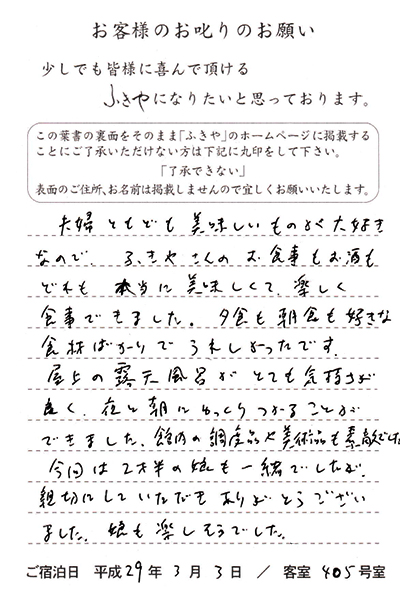 お客様のお叱りのお願い
少しでも皆様に喜んで頂ける
ふきやになりたいと思っております。
この葉書の裏面をそのまま「ふきや」のホームページに掲載する
ことにご了承いただけない方は下記に丸印をして下さい。
「了承できない」
表面のご住所、お名前は掲載しませんので宜しくお願いいたします。
夫婦ともども美味しいものが大好き
なので、ふきやさんのお食事もお酒も
どれも本当に美味しくて、楽しく
食事できました。夕食も朝食も好きな
食材ばかりでうれしかったです。
屋上の露天風呂がとても気持ちが
良く、夜と朝にゆっくりつかることが
できました。館内の調度品や美術品も素敵でした
今回は2才半の娘も一緒でしたが、
親切にしていただきありがとうござい
ました。娘も楽しそうでした。
ご宿泊日 平成29年3月3日 / 客室405号室